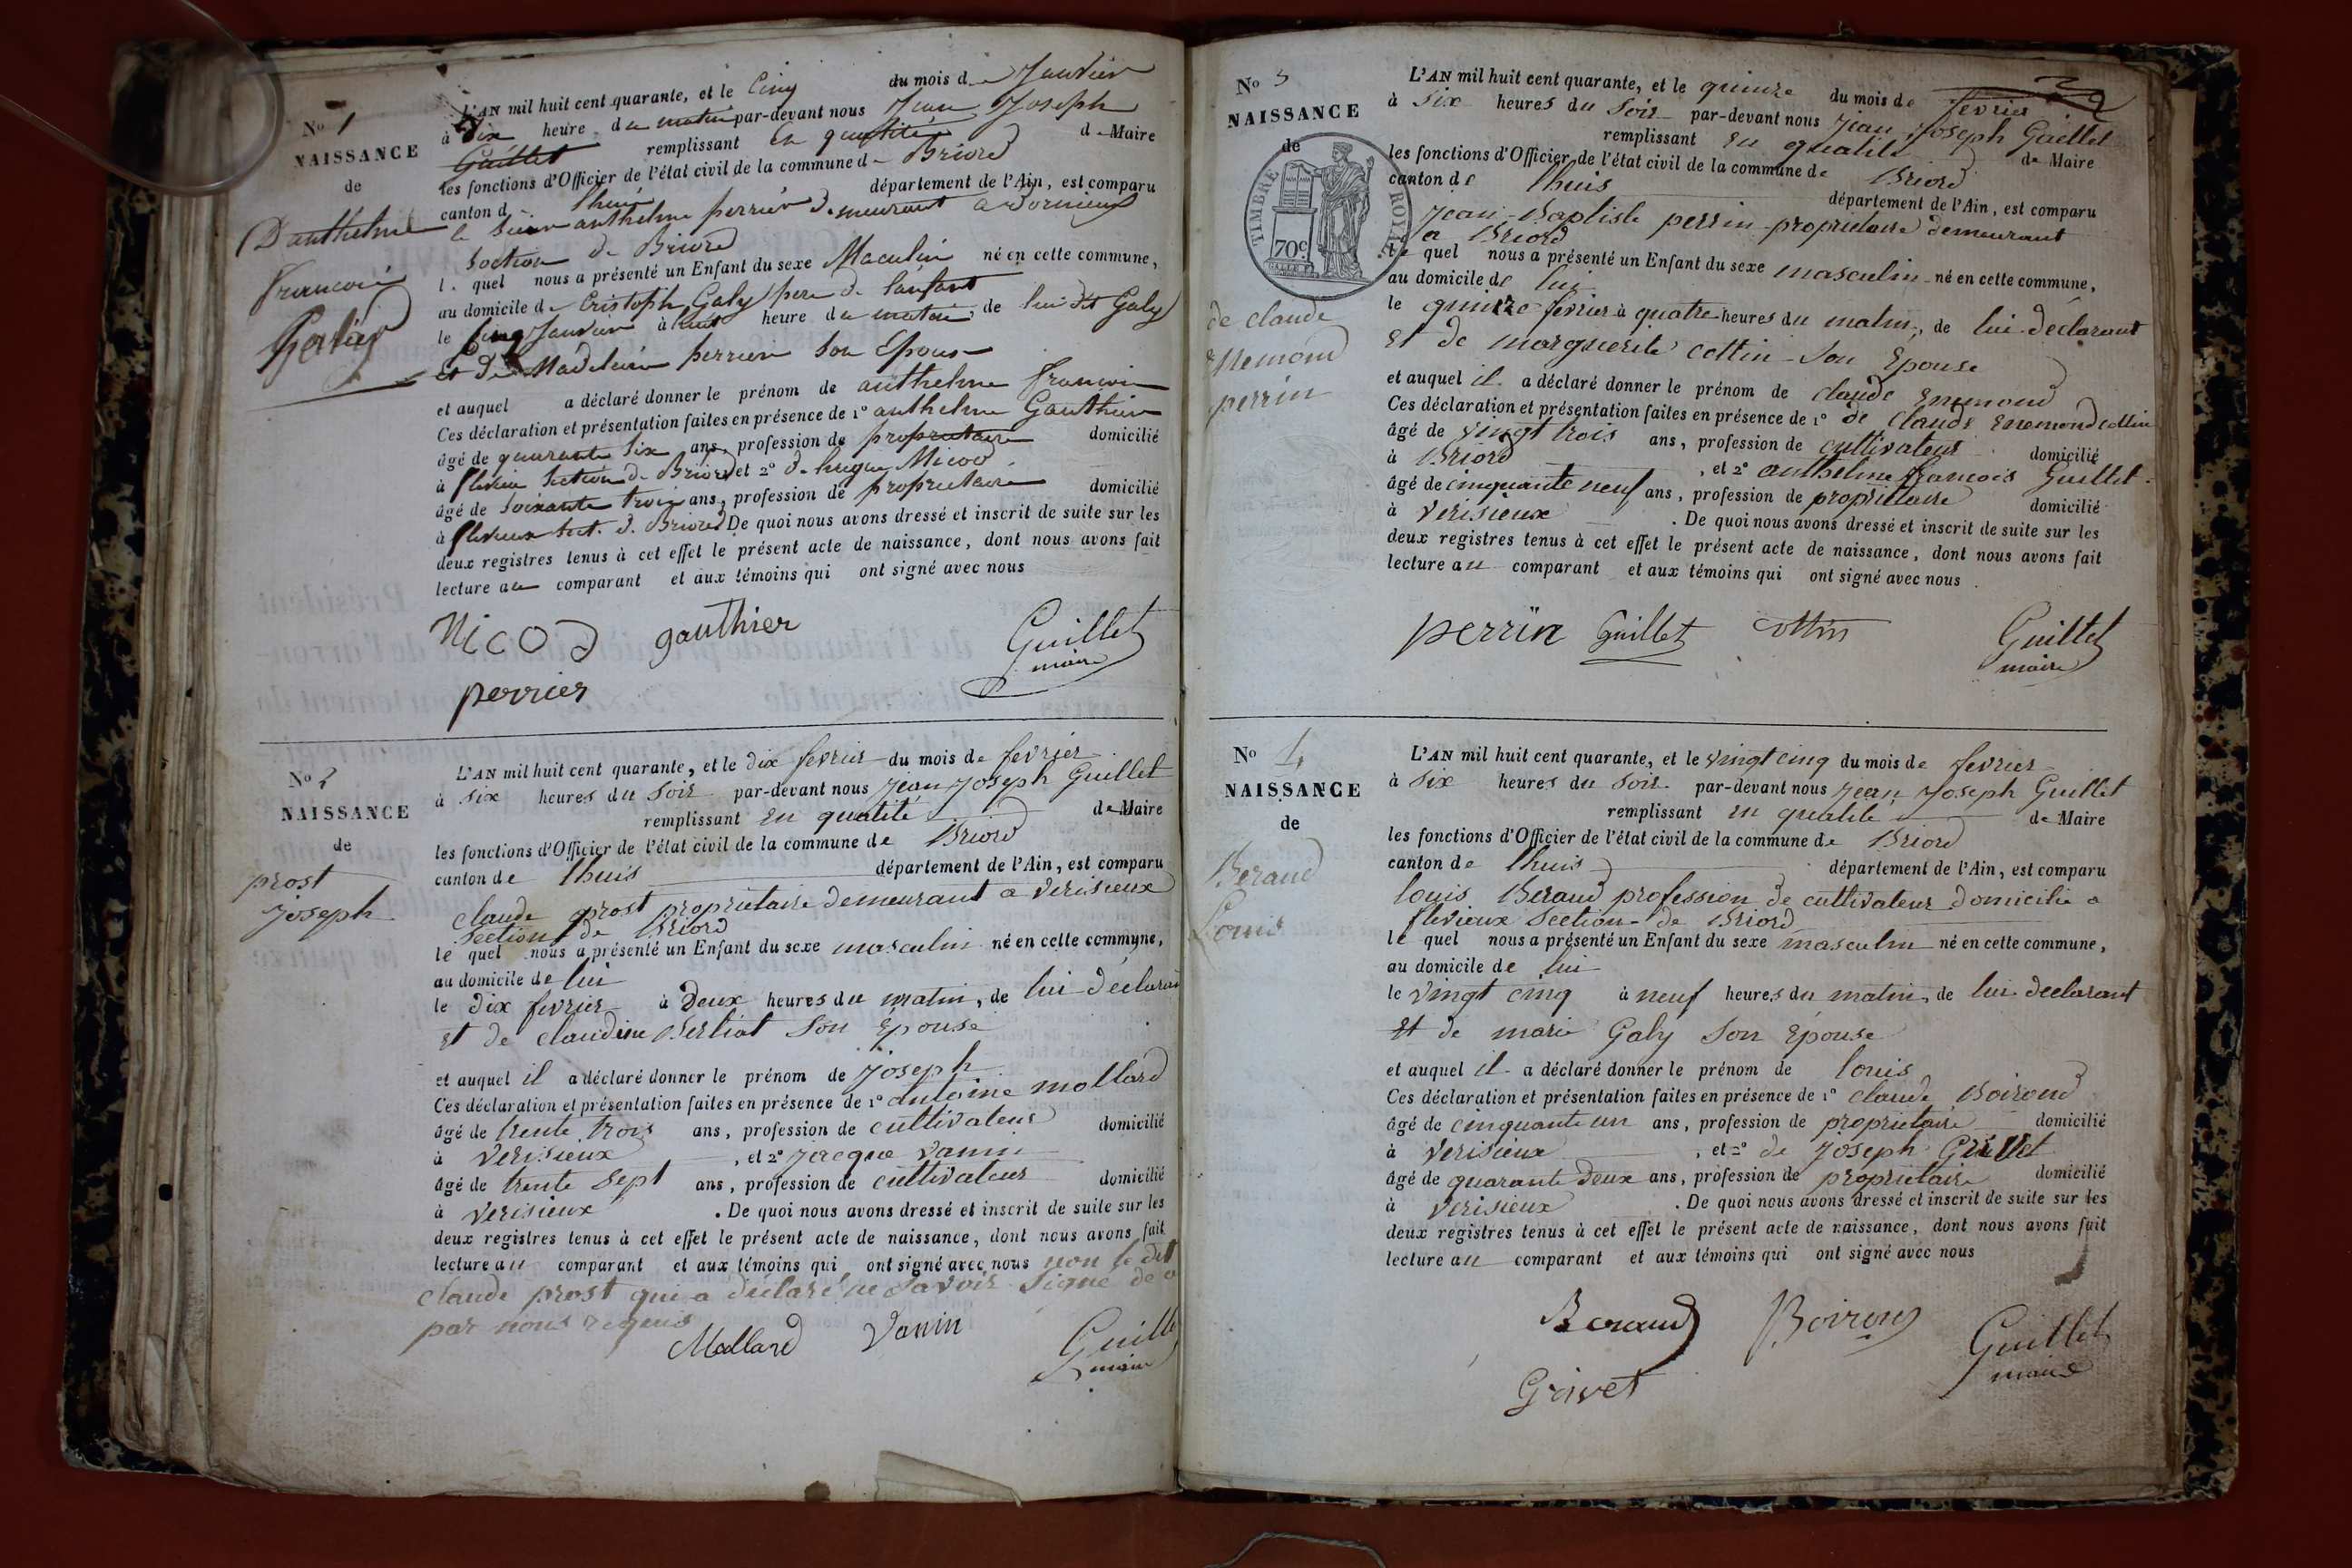 No 1
NAISSANCE
de
D'anthelme
francois
Galy
L'AN mil huit cent quarante, et le Cinq du mois de Janvier
à Dix heure du matin par-devant nous Jean Joseph
Guillet remplissant En qualité de Maire
les fonctions d'Officier de l'état civil de la commune de Briord
canton de lhuis département de l'Ain, est comparu
le sieur anthelme perrier demeurant a
Section de Briord
le quel nous a présenté un Enfant du sexe Maculin né en cette commune,
au domicile de Cristoph Galy pere de lanfant
le Cinq Janvier à huit heure du matin, de lui dit Galy
Et de Madelaine perrier son Epouse
et auquel a déclaré donner le prénom de anthelme francois
Ces déclaration et présentation faites en présence de 1o anthelme Gauthier
âgé de quarante six ans, profession de propriétaire domicilié
à flevieu Section de Briord et 2o de hugue Nicod
âgé de soixante trois ans, profession de proprietaire domicilié
à flevieux Sect. d. Briord De quoi nous avons dressé et inscrit de suite sur les
deux registres tenus à cet effet le présent acte de naissance, dont nous avons fait
lecture au comparant et aux témoins qui ont signé avec nous
Nicod gauthier Guillet
maire
perrier
No 2
NAISSANCE
de
prost
joseph
L'AN mil huit cent quarante, et le dix fevrier du mois de fevrier
à six heures du soir par-devant nous jean joseph Guillet
remplissant En qualité de Maire
les fonctions d'Officier de l'état civil de la commune de Briord
canton de lhuis département de l'Ain, est comparu
claude prost proprietaire demeurant a verisieux
section de Briord
le quel nous a présenté un Enfant du sexe masculin né en cette commune,
au domicile de lui
le dix fevrier à Deux heures du matin, de lui déclarant
Et de claudine Berliat son Epouse
et auquel il a déclaré donner le prénom de joseph
Ces déclaration et présentation faites en présence de 1o antoine mollard
âgé de trente trois ans, profession de cultivateur domicilié
à verisieux, et 2o jacque vanin
âgé de trente sept ans, profession de cultivateur domicilié
à verisieux. De quoi nous avons dressé et inscrit de suite sur les
deux registres tenus à cet effet le présent acte de naissance, dont nous avons fait
lecture au comparant et aux témoins qui ont signé avec nous non le dit
claude prost qui a déclaré ne savoir signé de ce
par nous requis
Mollard vanin Guillet
maire
No 3
NAISSANCE
de
TIMBRE ROYAL
70c
de claude
Enemond
perrin
L'AN mil huit cent quarante, et le quinze du mois de fevrier
à six heures du soir par-devant nous jean joseph Guillet
remplissant En qualité de Maire
les fonctions d'Officier de l'état civil de la commune de Briord
canton de lhuis département de l'Ain, est comparu
jean-Baptiste perrin proprietaire demeurant
a Briord
le quel nous a présenté un Enfant du sexe masculin né en cette commune,
au domicile de lui
le quinze fevrier à quatre heures du matin, de lui déclarant
Et de marguerite cottin son Epouse
et auquel il a déclaré donner le prénom de claude Enemond
Ces déclaration et présentation faites en présence de 1o de claude Enemond cottin
âgé de vingt trois ans, profession de cultivateur domicilié
à Briord, et 2o anthelme francois Guillet
âgé de cinquante neuf ans, profession de proprietaire domicilié
à verisieux. De quoi nous avons dressé et inscrit de suite sur les
deux registres tenus à cet effet le présent acte de naissance, dont nous avons fait
lecture au comparant et aux témoins qui ont signé avec nous
perrin Guillet cottin Guillet
maire
No 4
NAISSANCE
de
Beraud
Louis
L'AN mil huit cent quarante, et le vingt cinq du mois de fevrier
à six heures du soir par-devant nous jean joseph Guillet
remplissant en qualité de Maire
les fonctions d'Officier de l'état civil de la commune de Briord
canton de lhuis département de l'Ain, est comparu
louis Beraud profession de cultivateur domicilié a
flevieux section de Briord
le quel nous a présenté un Enfant du sexe masculin né en cette commune,
au domicile de lui
le vingt cinq à neuf heures du matin, de lui declarant
Et de marie Galy son Epouse
et auquel il a déclaré donner le prénom de louis
Ces déclaration et présentation faites en présence de 1o claude Boiroud
âgé de cinquante un ans, profession de proprietaire domicilié
à verisieux, et 2o de joseph
âgé de quarante deux ans, profession de proprietaire domicilié
à verisieux. De quoi nous avons dressé et inscrit de suite sur les
deux registres tenus à cet effet le présent acte de naissance, dont nous avons fait
lecture au comparant et aux témoins qui ont signé avec nous
Beraud Boiroud Guillet
maire
Grivet